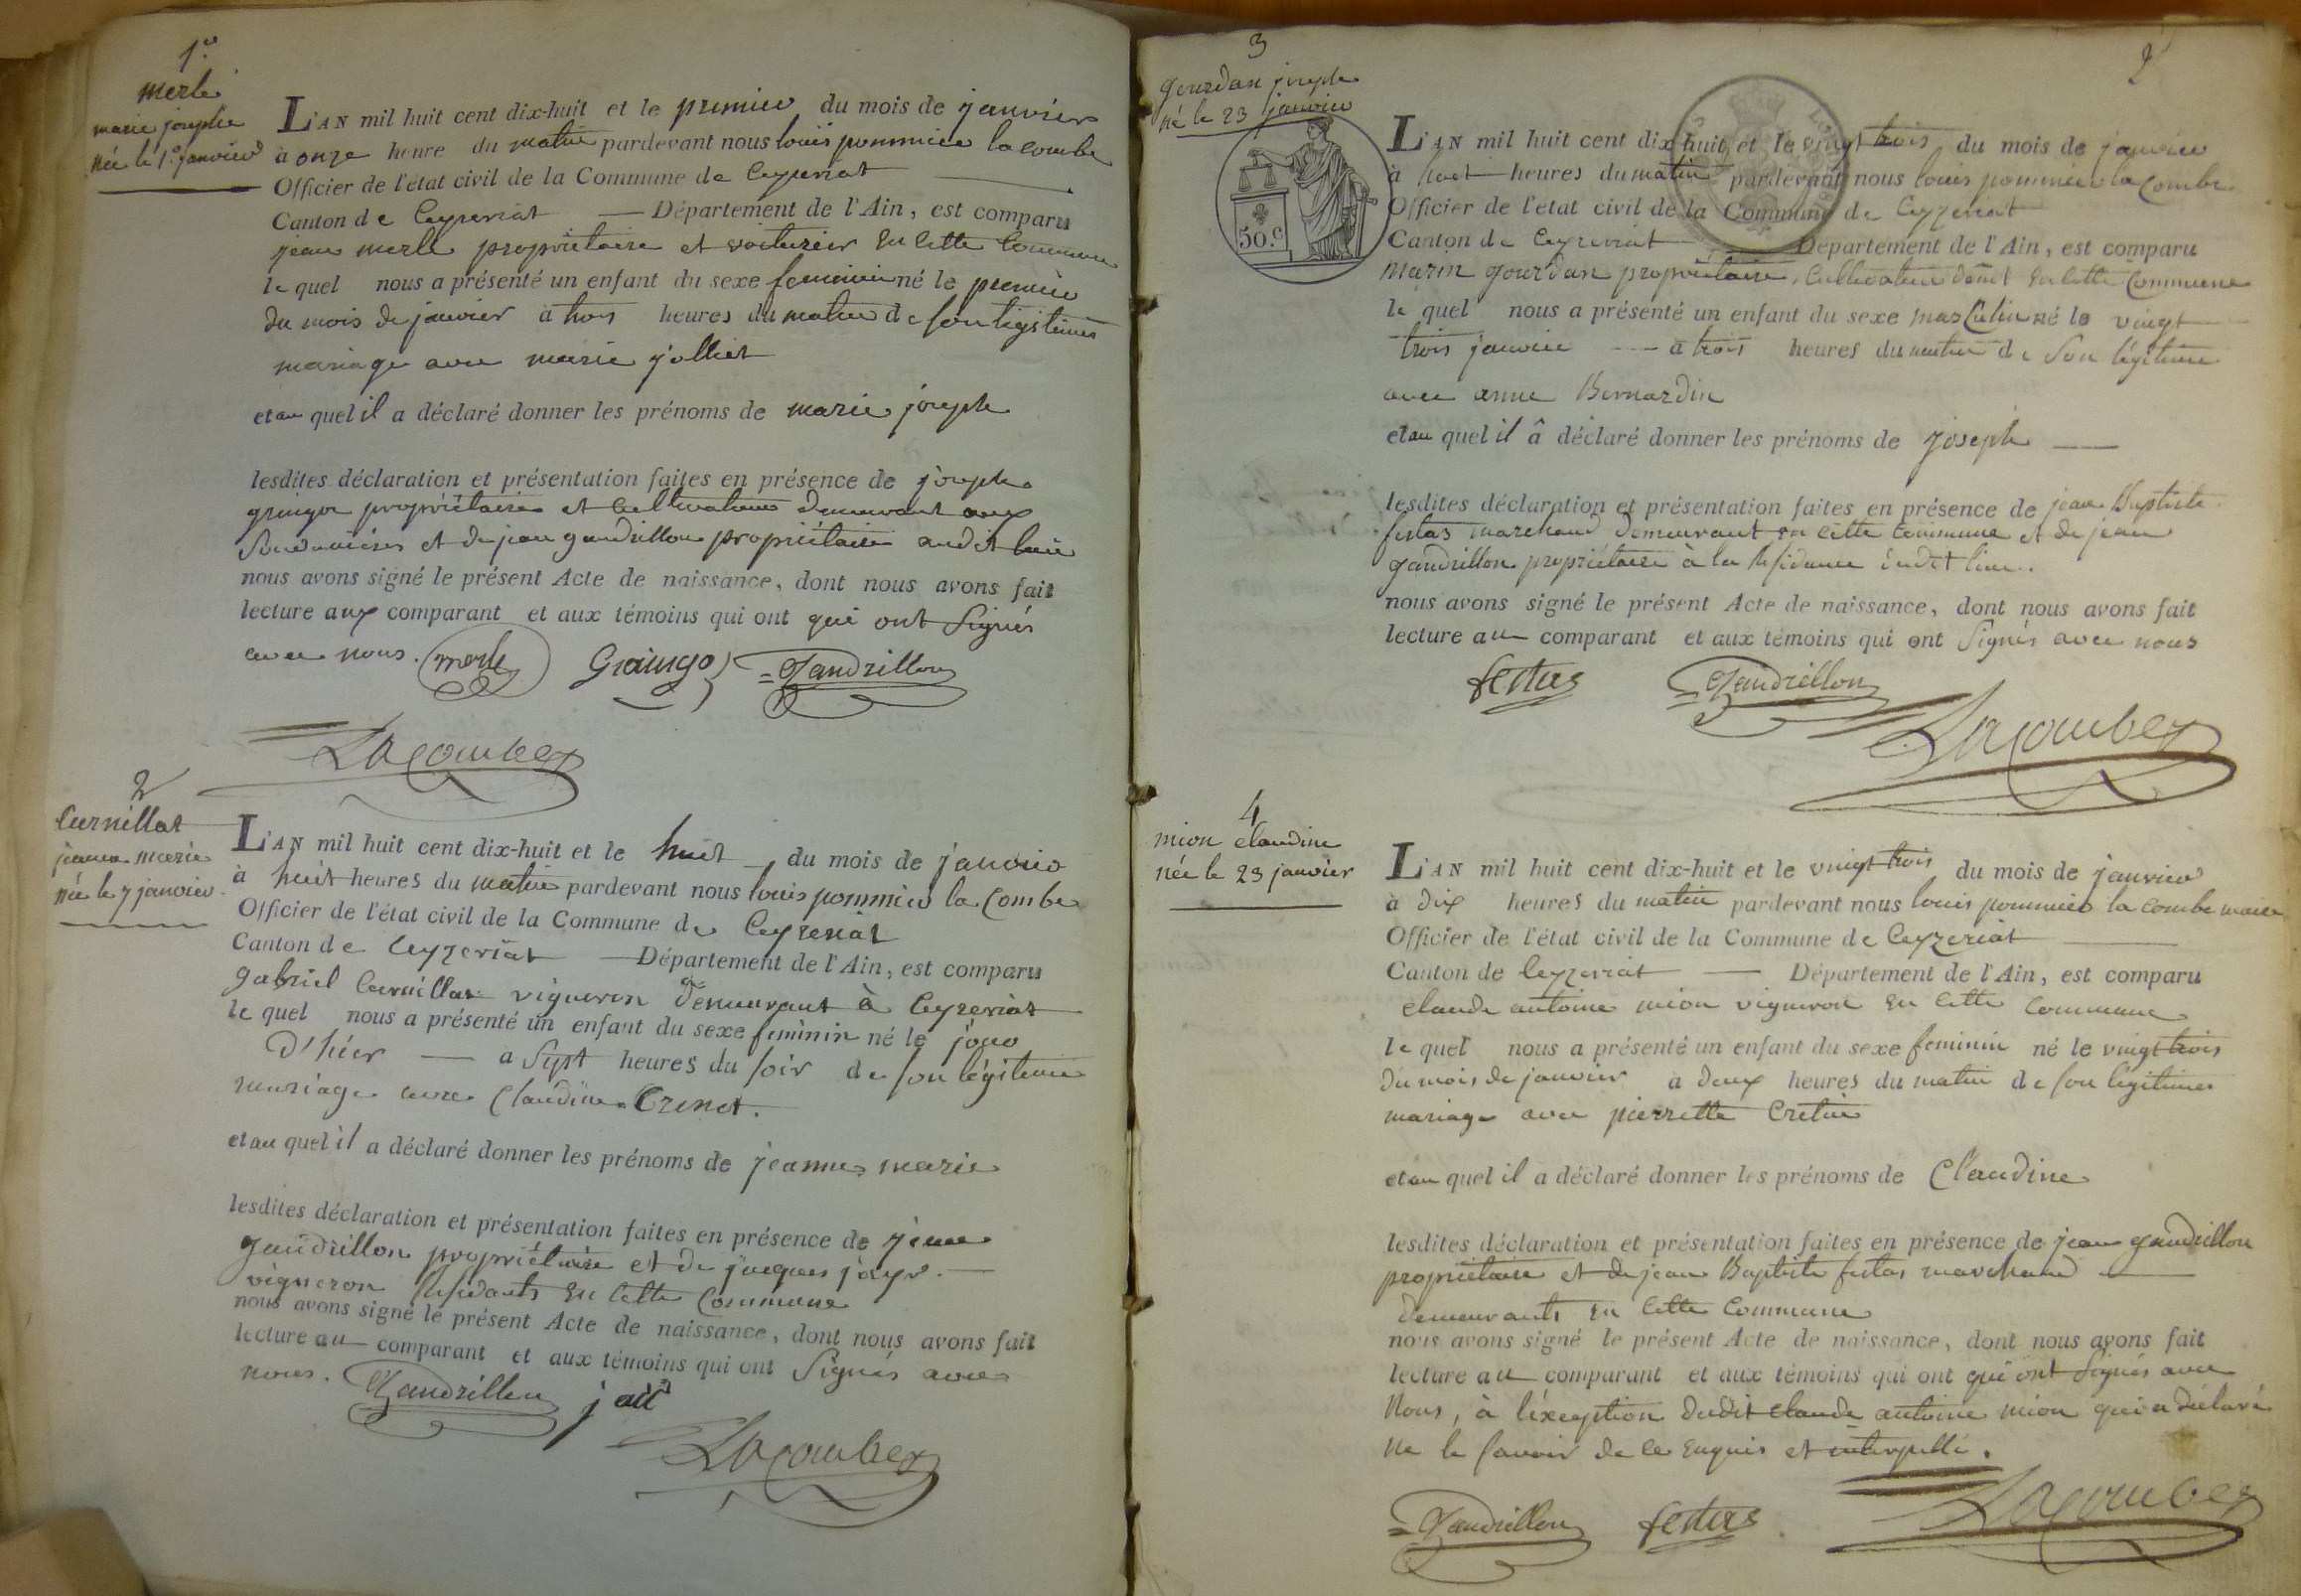 1.e
merle
marie josephe
née le 1.er janvier
L'AN mil huit cent dix-huit et le premier du mois de janvier
à onze heure du matin pardevant nous louis pommier lacombe
Officier de l'état civil de la Commune de Ceyzeriat
Canton de Ceyzeriat — Département de l'Ain, est comparu
jean merle propriétaire et voiturier en cette Commune
le quel nous a présenté un enfant du sexe feminin né le premier
du mois de janvier à trois heures du matin de son legitime
mariage avec marie jolliet
et au quel il a déclaré donner les prénoms de marie josephe
lesdites déclaration et présentation faites en présence de joseph
propriétaire et Cultivateur demeurant aux
et de jean gandrillon propriétaire audit lieu
nous avons signé le présent Acte de naissance, dont nous avons fait
lecture aux comparant et aux témoins qui ont qui ont Signés
avec nous. merle Graingo Gandrillon
Lacombe
2
Curnillat
jeanne marie
née le 7 janvier
L'AN mil huit cent dix-huit et le huit du mois de janvier
à huit heures du matin pardevant nous louis pommier la Combe
Officier de l'état civil de la Commune de Ceyzeriat
Canton de Ceyzeriat — Département de l'Ain, est comparu
gabriel Curnillat vigneron demeurant à Ceyzeriat
le quel nous a présenté un enfant du sexe feminin né le jour
d'hier — a sept heures du soir de son légitime
mariage avec Claudine Crenet.
et au quel il a déclaré donner les prénoms de jeanne marie
lesdites déclaration et présentation faites en présence de jean
gandrillon propriétaire et de jacques jayr. —
vigneron résidants en cette Commune
nous avons signé le présent Acte de naissance, dont nous avons fait
lecture au comparant et aux témoins qui ont Signés avec
nous. Gandrillon
Lacombe
2
3
gourdan joseph
né le 23 janvier
50.c
L'AN mil huit cent dix-huit et le vingt trois du mois de janvier
à huit heures du matin pardevant nous louis pommier la Combe
Officier de l'état civil de la Commune de Ceyzeriat
Canton de Ceyzeriat — Département de l'Ain, est comparu
Marin gourdan propriétaire, Cultivateur demt en cette Commune
le quel nous a présenté un enfant du sexe masculin né le vingt
trois janvier — a trois heures du matin de son légitime
avec anne Bernardin
et au quel il â déclaré donner les prénoms de joseph —
lesdites déclaration et présentation faites en présence de jean Baptiste
festas marchand demeurant en cette commune et de jean
gandrillon propriétaire à la résidence dudit lieu.
nous avons signé le présent Acte de naissance, dont nous avons fait
lecture au comparant et aux témoins qui ont Signés avec nous
festas Gandrillon
Lacombe
4
mion claudine
née le 23 janvier
L'AN mil huit cent dix-huit et le vingt trois du mois de janvier
à dix heures du matin pardevant nous louis pommier la combe maire
Officier de l'état civil de la Commune de Ceyzeriat
Canton de Ceyzeriat — Département de l'Ain, est comparu
claude antoine mion vigneron en cette commune
le quel nous a présenté un enfant du sexe feminin né le vingt trois
du mois de janvier a deux heures du matin de son légitime
mariage avec pierrette Cretin
et au quel il a déclaré donner les prénoms de Claudine
lesdites déclaration et présentation faites en présence de jean gandrillon
propriétaire et de jean Baptiste festas marchand —
demeurants en cette Commune
nous avons signé le présent Acte de naissance, dont nous avons fait
lecture au comparant et aux témoins qui ont qui ont Signés avec
Nous, à l'exception dudit claude antoine mion qui a déclaré
ne le savoir de ce enquis et interpellé.
Gandrillon festas Lacombe